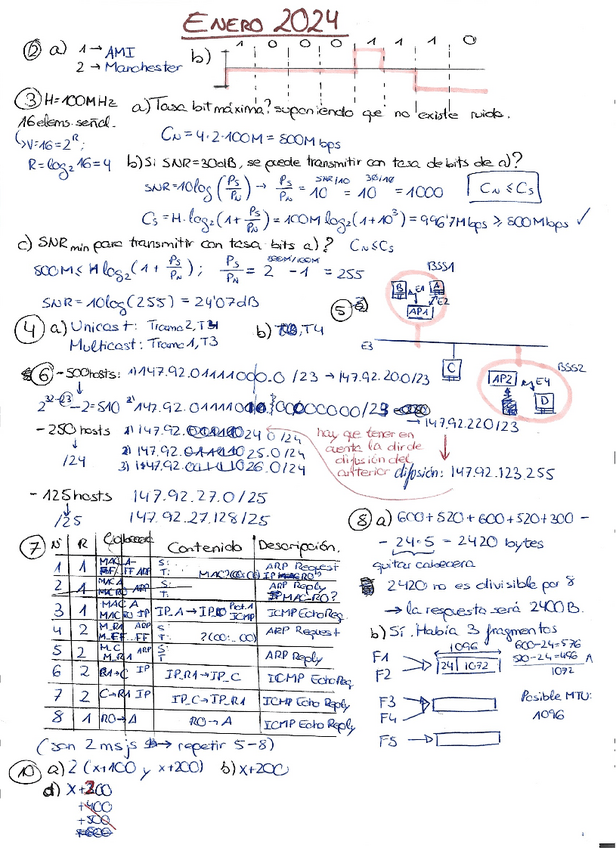 ENERO 2024
② a) 1 → AMI
2 → Manchester
b) 1 0 0 0 1 1 1 0
③ H = 100MHz
16 elems. señal.
↳V=16=2^R;
R = log₂16 = 4
a) Tasa bit máxima? suponiendo que no existe ruido.
C_N = 4·2·100M = 800Mbps
b) Si SNR=30dB, se puede transmitir con tasa de bits de a)?
SNR = 10log(P_S/P_N) → P_S/P_N = 10^(SNR/10) = 10^(30/10) = 1000
C_N ≤ C_S
C_S = H·log₂(1+P_S/P_N) = 100M log₂(1+10³) = 996'7Mbps ≥ 800Mbps ✓
c) SNR min para transmitir con tasa bits a)? C_N ≤ C_S
800M ≤ H log₂(1+P_S/P_N); P_S/P_N = 2^(800M/100M) - 1 = 255
SNR = 10log(255) = 24'07dB
④ a) Unicast: Trama2, T4
Multicast: Trama1, T3
b) T4
⑤
BSS1
B E1 A
E2
AP1
E3
C
BSS2
AP2 E4
D
⑥ - 500hosts: 1) 147.92.0111100.0 /23 → 147.92.20.0/23
-2=510 → 147.92.22.0/23
- 250 hosts
↓
/24
1) 147.92. 24.0/24
2) 147.92. 25.0/24
3) 147.92. 26.0/24
hay que tener en
cuenta la dir de
difusión del
anterior
difusión: 147.92.123.255
- 125 hosts
↓
/25
147.92.27.0/25
147.92.27.128/25
⑦ Nº R Contenido Descripción.
1 1 MAC A- FF ARP S: T: ARP Request
2 1 MAC A ARP S: T: ARP Reply
3 1 MAC A IP IP_A → IP_RO ICMP Echo Req.
4 2 M_R1 ARP M_FF..FF S: T: ?(00:..00) ARP Request
5 2 M_C M_R1 ARP S: T: ARP Reply
6 2 R1→C IP IP_R1→IP_C ICMP Echo Req
7 2 C→R1 IP IP_C→IP_R1 ICMP Echo Reply
8 1 RO→A RO→A ICMP Echo Reply
(son 2 msjs → repetir 5-8)
⑧ a) 600+520+600+520+300 -
- 24·5 = 2420 bytes
quitar cabecera
2420 no es divisible por 8
→ la respuesta será 2400B.
b) Sí. Había 3 fragmentos
F1
F2
1096
24 1072
600-24=576
520-24=496
1072
F3
F4
F5
Posible MTU:
1096
⑩ a) 2 (x+100 y x+200) b) x+200
d) x+200
+400
+500
+600